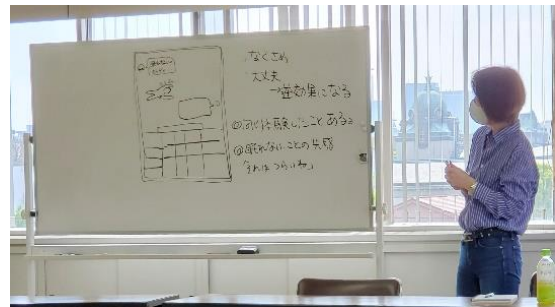 ・なぐさめ
・大丈夫
→逆効果になる
◎同じ体験したことある?
◎眠れないことの共感
「それは つらいね」